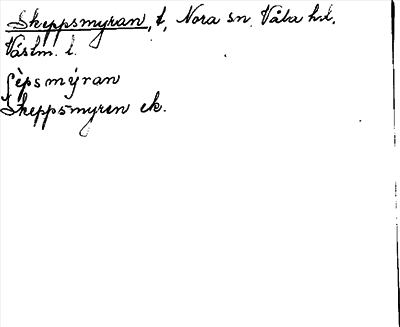 Skeppsmyran, t, Nora sn. Våla hd.
Västm. l.
ʃèpsmýran
Skeppsmyren ek.